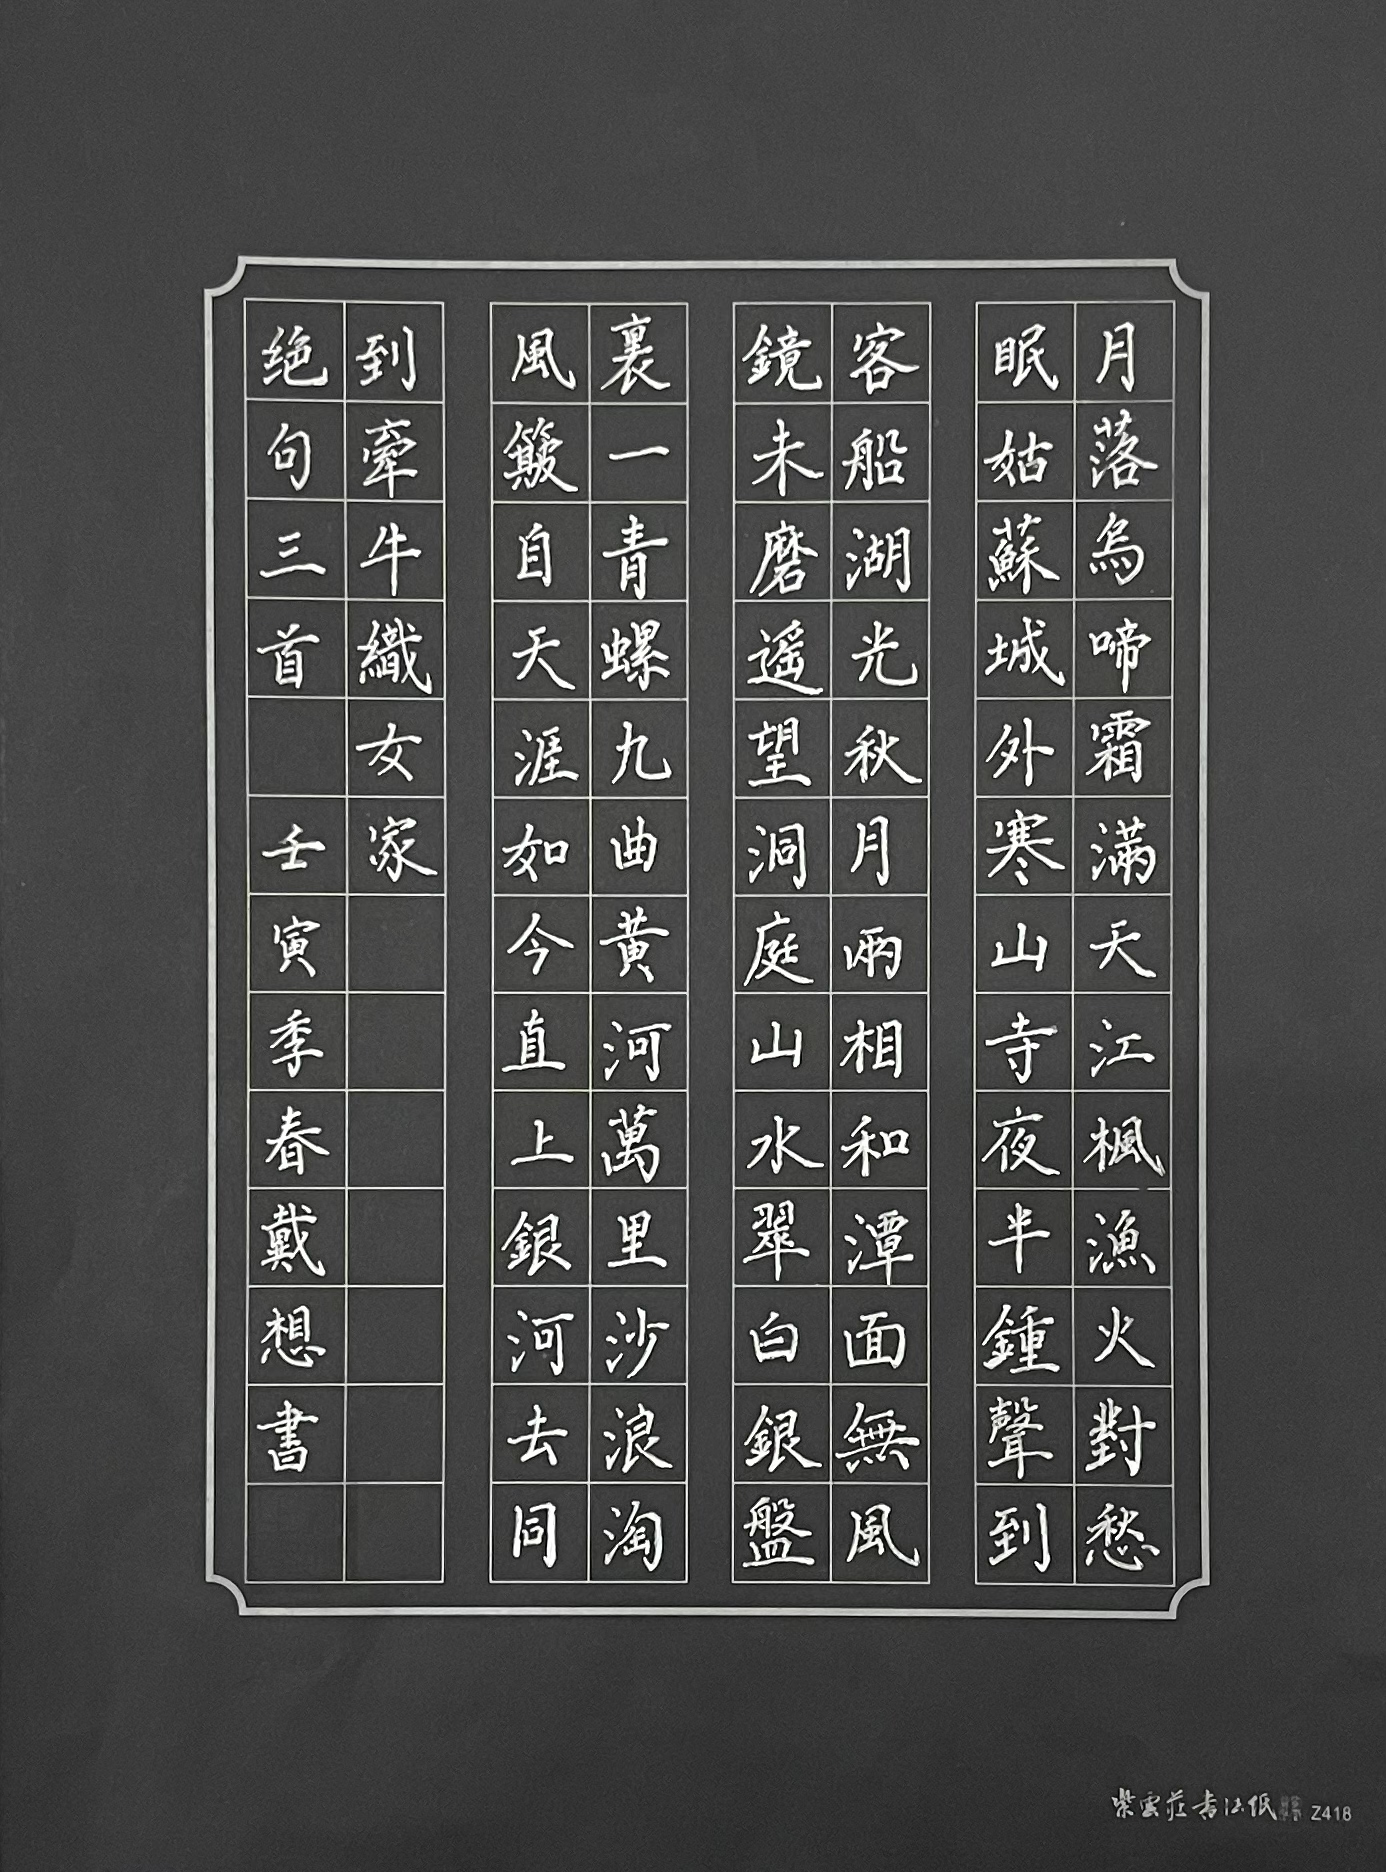 月落烏啼霜滿天江楓漁火對愁
眠姑蘇城外寒山寺夜半鍾聲到
客船湖光秋月兩相和潭面無風
鏡未磨遥望洞庭山水翠白銀盤
裏一青螺九曲黄河萬里沙浪淘
風簸自天涯如今直上銀河去同
到牽牛織女家
绝句三首 壬寅季春戴想書
紫雲莊書法紙 Z418